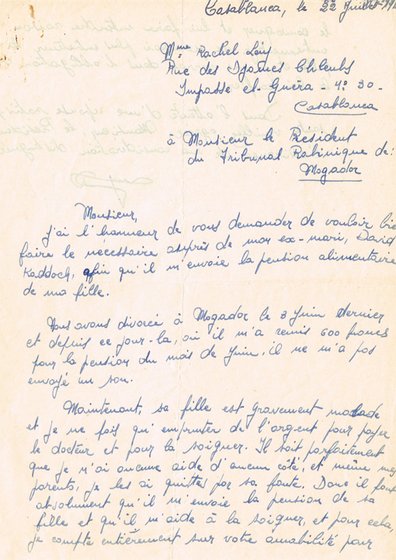 Casablanca, le 22 Juillet
Mme Rachel Lévy
Rue des Djamaa Chleuhs
Impasse el-Guéra - N° 30 -
Casablanca
à Monsieur le Président
du Tribunal Rabinique de
Mogador
Monsieur,
J'ai l'honneur de vous demander de vouloir bie
faire le nécessaire auprès de mon ex-mari, David
Kaddoch, afin qu'il m'envoie la pension alimentaire
de ma fille.
Nous avons divorcé à Mogador le 3 Juin dernier
et depuis ce jour-là, où il m'a remis 600 francs
pour la pension du mois de Juin, il ne m'a pas
envoyé un sou.
Maintenant, sa fille est gravement malade
et je ne fais qu'emprunter de l'argent pour payer
le docteur et pour la soigner. Il sait parfaitement
que je n'ai aucune aide d'aucun côté, et même mes
parents, je les ai quittés par sa faute. Donc il faut
absolument qu'il m'envoie la pension de sa
fille et qu'il m'aide à la soigner, et pour cela,
je compte entièrement sur votre amabilité pour